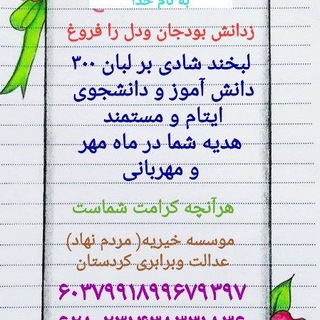 به نام خدا
زدانش بودجان ودل را فروغ
لبخند شادی بر لبان ۳۰۰
دانش آموز و دانشجوی
ایتام و مستمند
هدیه شما در ماه مهر
و مهربانی
هرآنچه کرامت شماست
موسسه خیریه( مردم نهاد)
عدالت وبرابری کردستان
۶۰۳۷۹۹۱۸۹۹۶۷۹۳۹۷